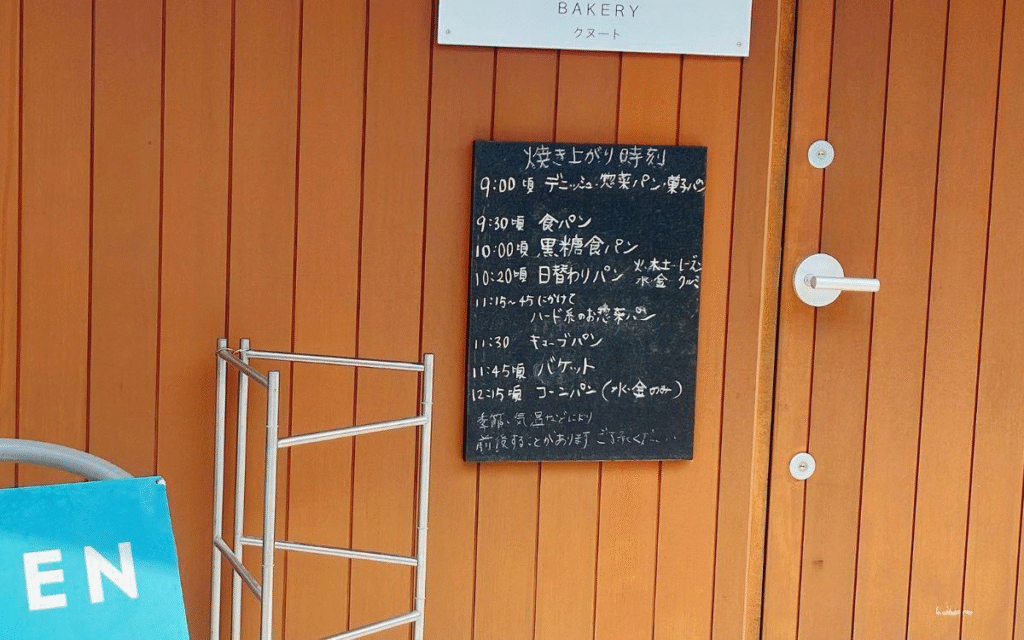 BAKERY
クヌート
焼き上がり時刻
9:00頃 デニッシュ・惣菜パン・菓子パン
9:30頃 食パン
10:00頃 黒糖食パン
10:20頃 日替わりパン 火・木・土・レーズン
水・金 クルミ
11:15〜45にかけて
ハード系のお惣菜パン
11:30 キューブパン
11:45頃 バケット
12:15頃 コーンパン(水・金のみ)
季節、気温などにより
前後することがあります ご了承くだ
EN